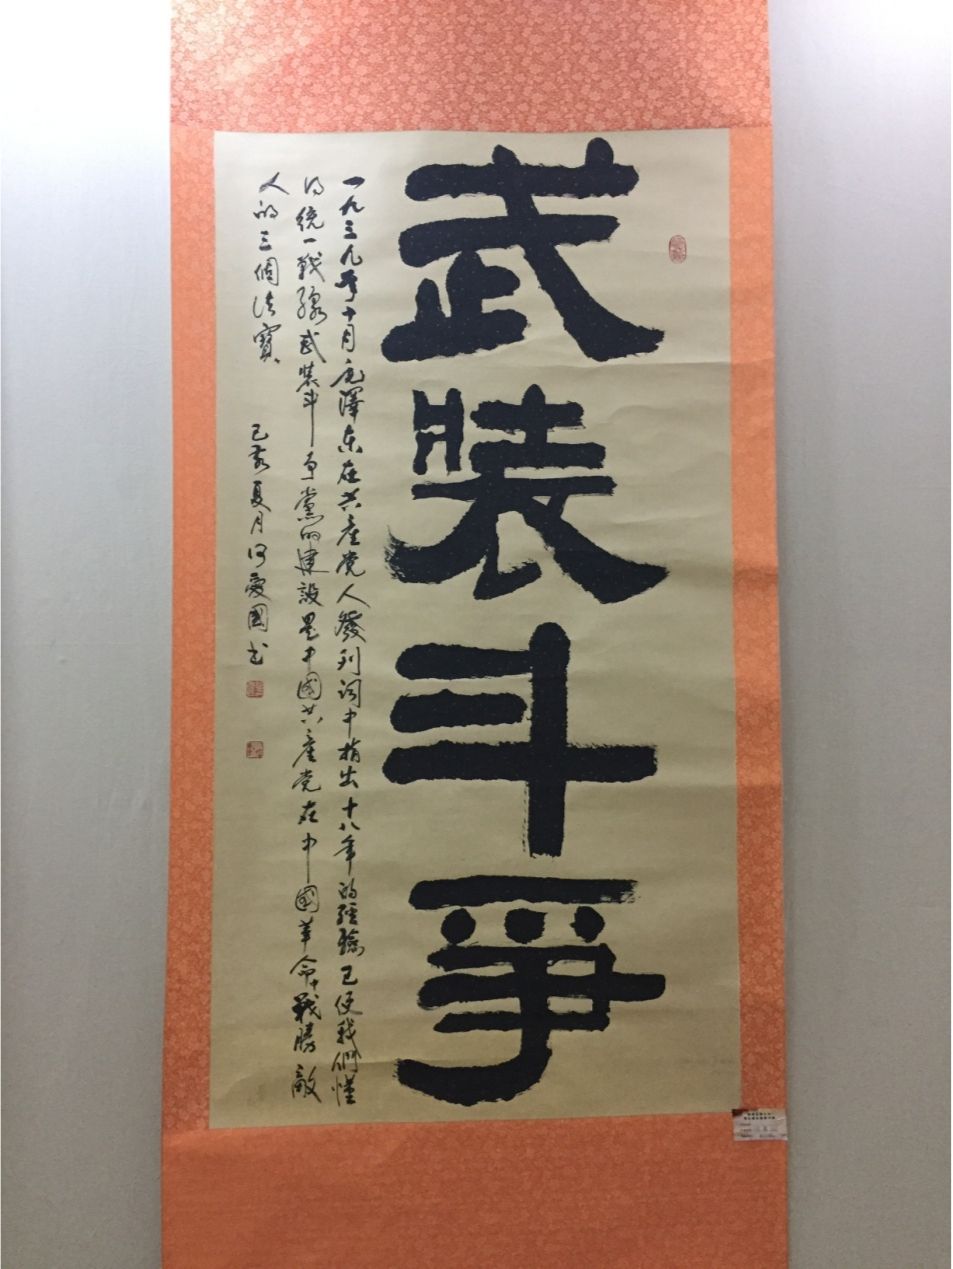 武裝斗爭
一九三九年十月毛澤东在共產党人發刊词中指出十八年的經驗已使我們懂
得统一戰線武裝斗争黨的建設是中國共產党在中國革命中戰勝敵
人的三個法寶
己亥夏月何爱國书